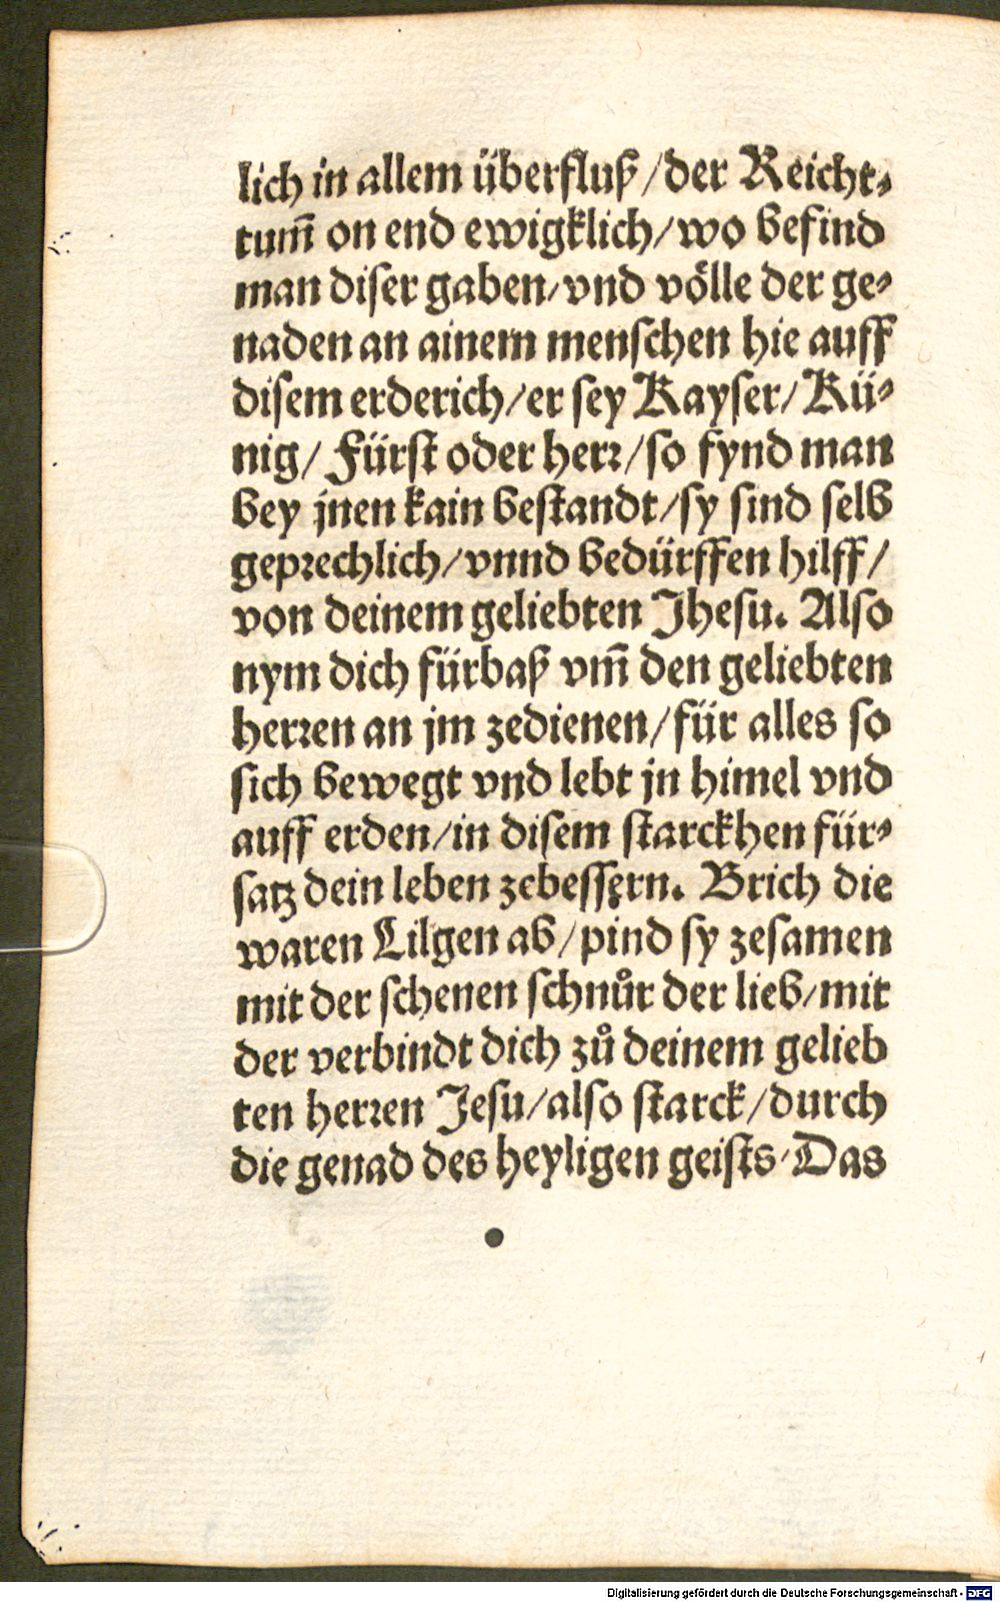 lich in allem überfluß/der Reicht⸗
tum̅ on end ewigklich/wo befind
man diser gaben/vnd völle der ge⸗
naden an ainem menschen hie auff
disem erderich/er sey Kayser/Kü⸗
nig/Fürst oder herr/so fynd man
bey jnen kain bestandt/sy sind selb
geprechlich/vnnd bedürffen hilff/
von deinem geliebten Jhesu. Also
nym dich fürbaß vm̅ den geliebten
herren an jm zedienen/für alles so
sich bewegt vnd lebt jn himel vnd
auff erden/in disem starckhen für⸗
satz dein leben zebessern. Brich die
waren Lilgen ab/pind sy zesamen
mit der schenen schnůr der lieb/mit
der verbindt dich zů deinem gelieb
ten herren Jesu/also starck/durch
die genad des heyligen geists/Das
Digitalisierung gefördert durch die Deutsche Forschungsgemeinschaft - DFG